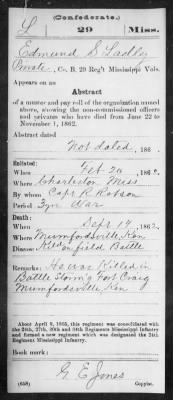 (Confederate.)
L 29 Miss.
Edmund S Ladley
Private, Co. B. 29 Reg't Mississippi Vols.
Appears on an
Abstract
of a muster and pay roll of the organization named
above, showing the non-commissioned officers
and privates who have died from June 22 to
November 1, 1862.
Abstract dated
Not dated, 186 .
Enlisted:
When Feb 20, 1862.
Where Charleston Miss
By whom Capt R Robson
Period 3 yrs War
Death:
When Sept 14, 1862.
Where Mumfordsville Ken
Disease: Killed on field Battle
Remarks: He was Killed in
Battle Storm'g Fort Craig
Mumfordsville Ken
About April 9, 1865, this regiment was consolidated with
the 24th, 27th, 30th and 34th Regiments Mississippi Infantry
and formed a new regiment which was designated the 24th
Regiment Mississippi Infantry.
Book mark:
G E Jones
(658) Copyist.